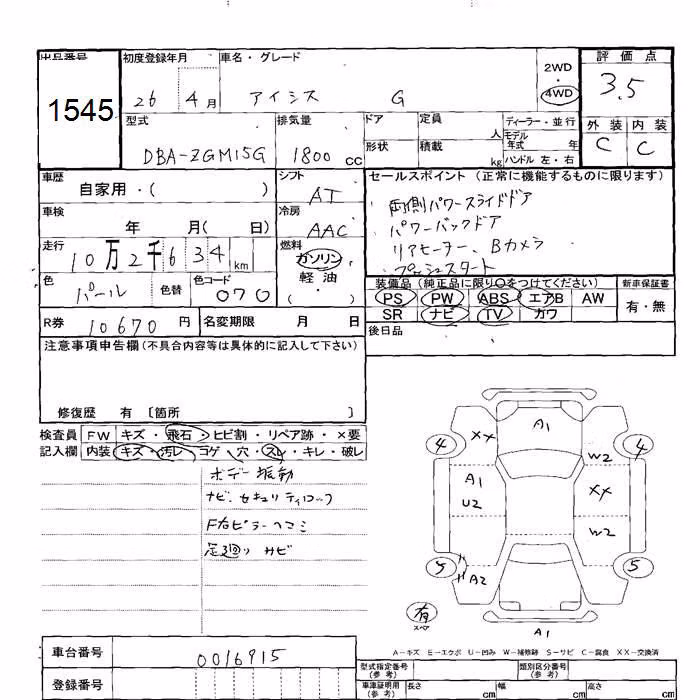 出品番号 初度登録年月 車名・グレード 2WD 評価点
1545 26 4月 アイシス G ・ 4WD 3.5
型式 排気量 ドア 定員 人 ディーラー・並行 外装 内装
DBA-ZGM15G 1800 cc 形状 積載 kg モデル年式 年 C C
ハンドル 左・右
車歴 シフト セールスポイント (正常に機能するものに限ります)
自家用・( ) AT 両側パワースライドドア
車検 冷房 パワーバックドア
年 月( 日) AAC リアヒーター、Bカメラ
走行 燃料 プッシュスタート
10万2千634km ガソリン
軽油
・
( )
色 パール 色替 色コード 070
装備品 (純正品に限り○をつけてください) 新車保証書
PS PW ABS エアB AW 有・無
SR ナビ TV カワ
R券 10670円 名変期限 月 日 後日品
注意事項申告欄 (不具合内容等は具体的に記入して下さい)
修復歴 有 〔箇所 〕
検査員 FW キズ・飛石・ヒビ割・リペア跡・×要
記入欄 内装 キズ・汚レ・コゲ・穴・スレ・キレ・破レ
ボデー振動
ナビ、セキュリティロック
F右ピラーヘコミ
足廻りサビ
A1
XX
4 4
W2
A1
U2
XX
W2
5 5
A2
有
スペア
A1
A-キズ E-エクボ U-凹み W-補修跡 S-サビ C-腐食 XX-交換済
車台番号 0016915
登録番号
型式指定番号 (参考) 類別区分番号 (参考)
車庫証明用 (参考) 長さ cm 幅 cm 高さ cm